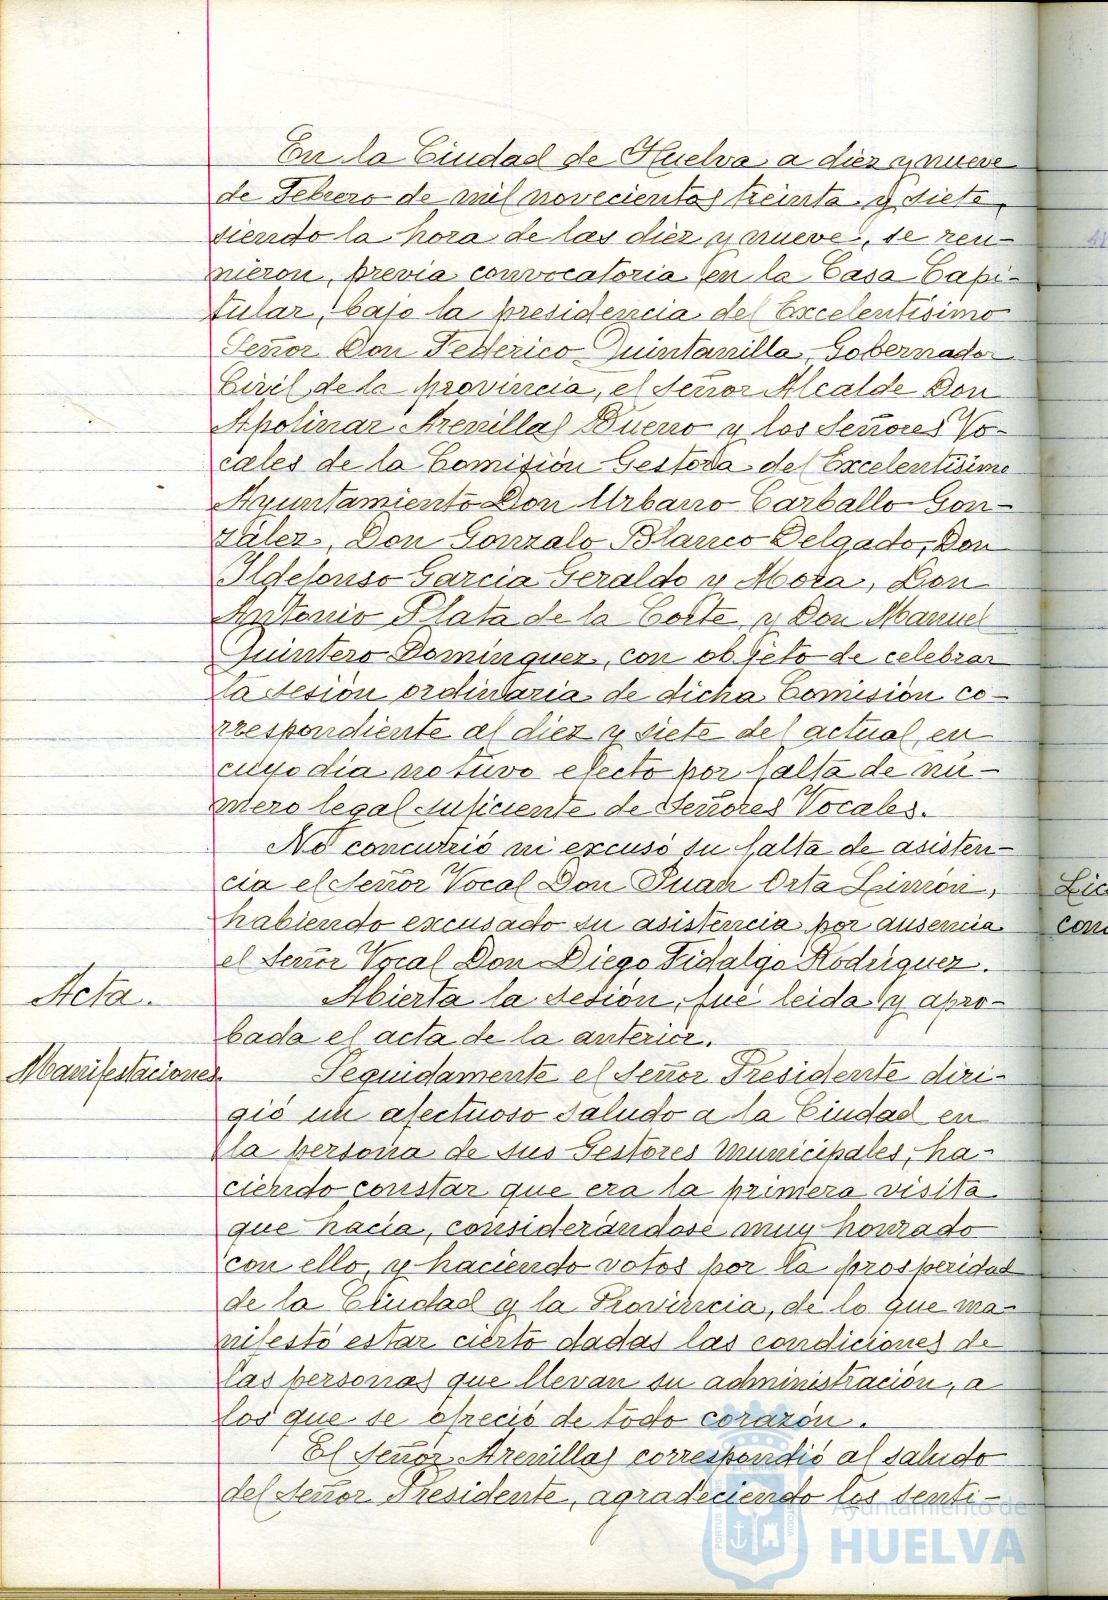 En la Ciudad de Huelva a diez y nueve
de Febrero de mil novecientos treinta y siete,
siendo la hora de las diez y nueve, se reu-
nieron, previa convocatoria en la Casa Capi-
tular, bajo la presidencia del Excelentísimo
Señor Don Federico Quintanilla, Gobernador
Civil de la provincia, el señor Alcalde Don
Apolinar Arenillas Bueno y los Señores Vo-
cales de la Comisión Gestora del Excelentísimo
Ayuntamiento Don Urbano Carballo Gon-
zález, Don Gonzalo Blanco Delgado, Don
Ildefonso García Geraldo y Mora, Don
Antonio Plata de la Corte, y Don Manuel
Quintero Domínguez, con objeto de celebrar
la sesión ordinaria de dicha Comisión co-
rrespondiente al diez y siete del actual, en
cuyo día no tuvo efecto por falta de nú-
mero legal suficiente de Señores Vocales.
No concurrió ni excusó su falta de asisten-
cia el Señor Vocal Don Juan Orta Limón,
habiendo excusado su asistencia por ausencia
el Señor Vocal Don Diego Fidalgo Rodríguez.
Acta.
Abierta la sesión, fué leida y apro-
bada el acta de la anterior.
Manifestaciones.
Seguidamente el Señor Presidente diri-
gió un afectuoso saludo a la Ciudad en
la persona de sus Gestores Municipales, ha-
ciendo constar que era la primera visita
que hacía, considerándose muy honrado
con ello, y haciendo votos por la prosperidad
de la Ciudad y la Provincia, de lo que ma-
nifestó estar cierto dadas las condiciones de
las personas que llevan su administración, a
los que se ofreció de todo corazón.
El Señor Arenillas correspondió al saludo
del Señor Presidente, agradeciendo los senti-
Lic
con
Ayuntamiento de
HUELVA